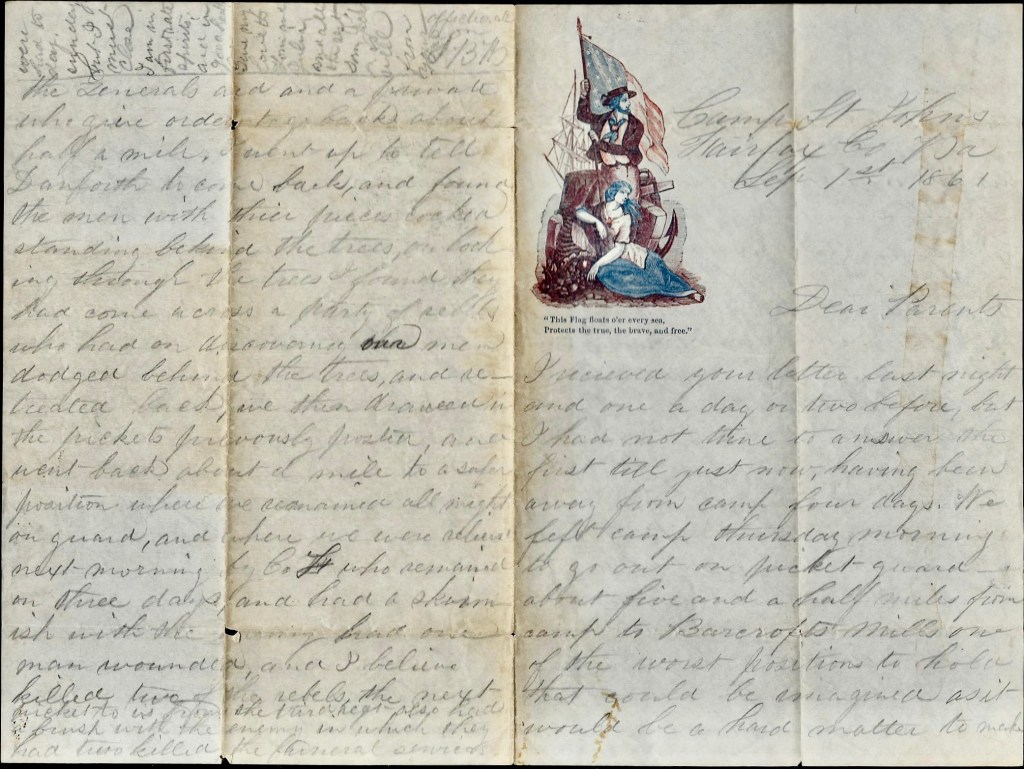 Camp St Johns
Fairfax Co Va
Sep 1st 1861
"This Flag floats o'er every sea,
Protects the true, the brave, and free."
Dear Parents
I recieved your letter last night
and one a day or two before, but
I had not time to answer the
first till just now, having been
away from camp four days. We
left camp thursday morning
to go out on picket guard
about five and a half miles from
camp to Barcrofts Mills one
of the worst positions to hold
that could be imagined as it
would be a hard matter to make
the Generals aid and a private
who give orders to go back about
half a mile, I went up to tell
Danforth to come back, and found
the men with thier pieces cocked
standing behind the trees, on look
ing through the trees I found they
had come across a party of rebels
who had on discovering our men
dodged behind the trees, and re-
treated back, we then drawed in
the pickets previously posted, and
went back about a mile to a safer
position where we remained all night
on guard, and where we were relieved
next morning by Co H who remained
on three days, and had a skirm
ish with the enemy had one
man wounded, and I believe
killed two of the rebels, the next
picket to us from the third Regt also had
a brush with the enemy in which they
had two killed the funeral services
were
had to
day.
but I
must
close
I am in
spirits